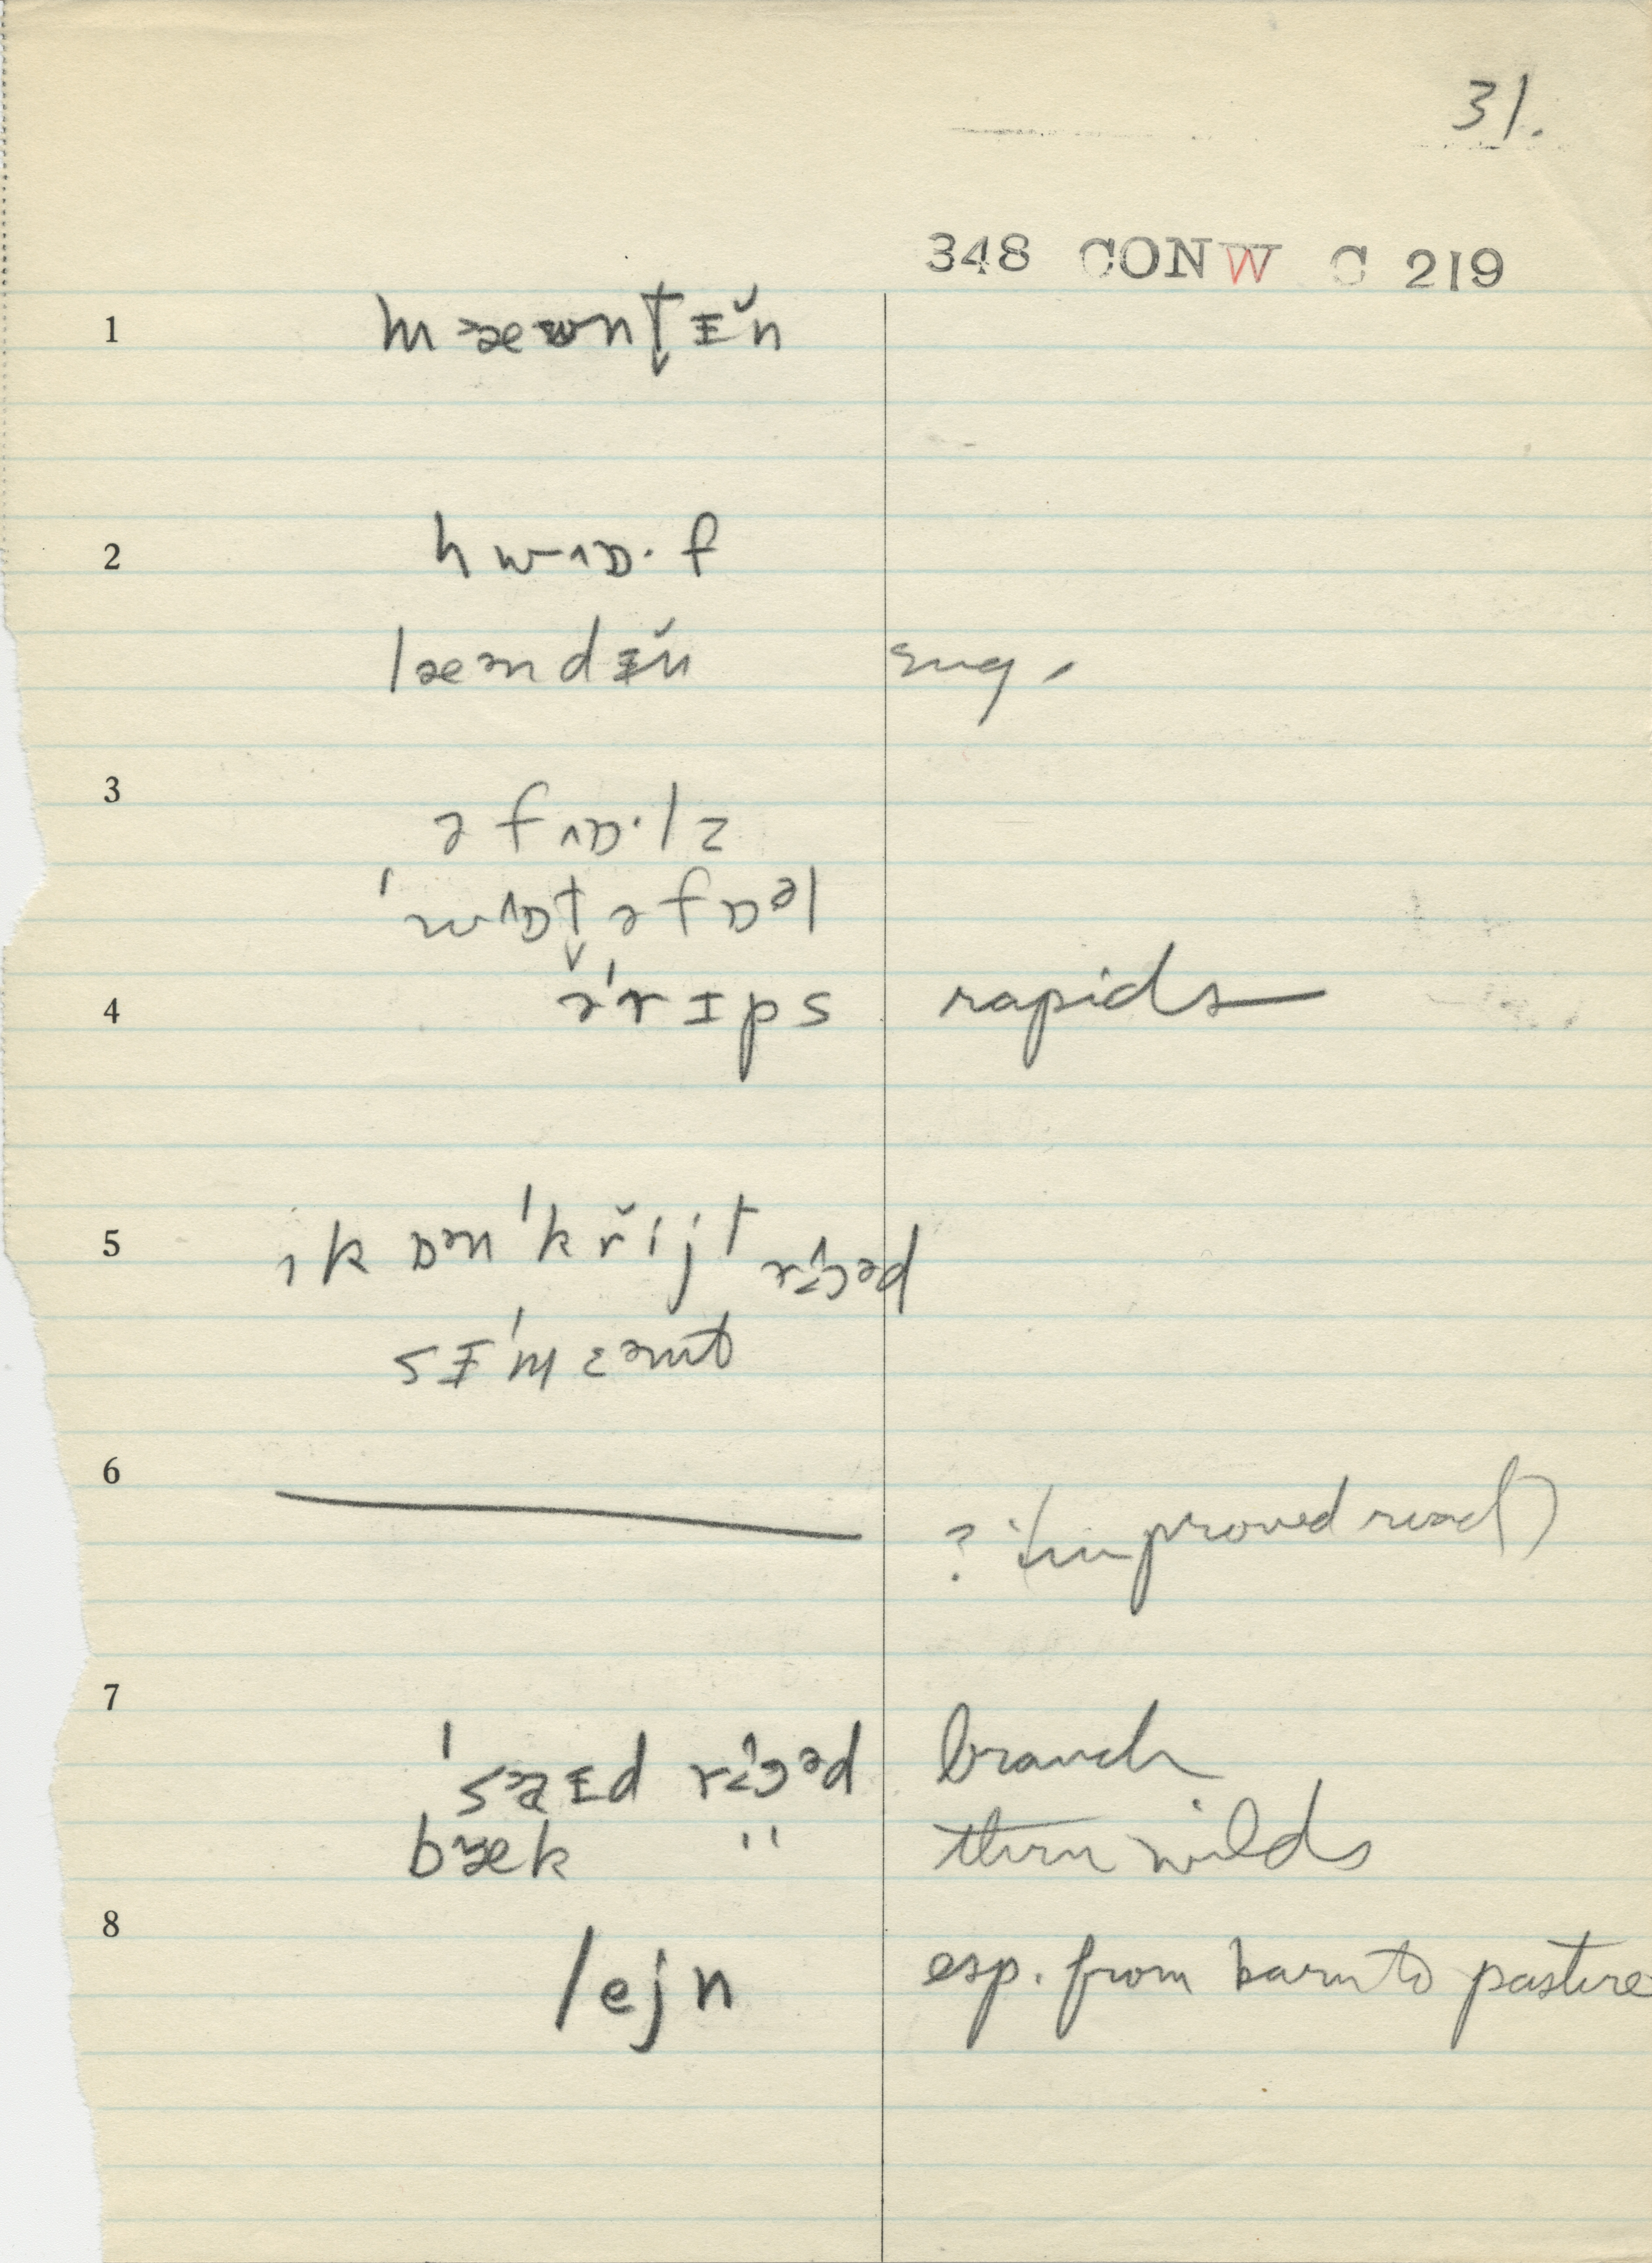 31.
348 CONW C 219
1 mæwnt̬ɪ̆n
2 hwɒ·f
lændɪ̆n sug.
3 ə fɒ·lz
ˈwɒt̬ə fɒəl
4 əˈrɪps rapids
5 kɒnˈkr̆ijt rɔəd
sɪˈmɛnt
6 ? (improved road)
7 ˈsaɪd rɔəd branch
bæk " thru wilds
8 lejn esp. from barn to pasture